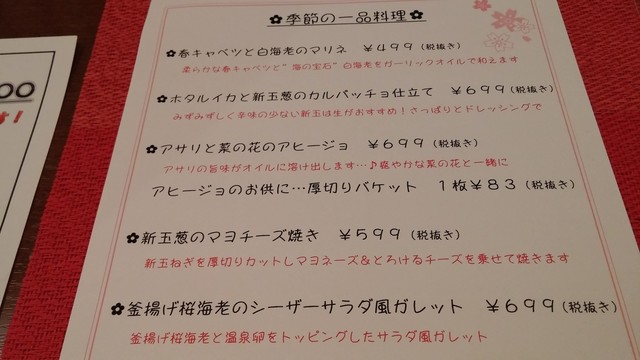 ✿季節の一品料理✿
✿春キャベツと白海老のマリネ ¥499（税抜き）
柔らかな春キャベツと"海の宝石"白海老をガーリックオイルで和えます
✿ホタルイカと新玉葱のカルパッチョ仕立て ¥699（税抜き）
みずみずしく辛味の少ない新玉は生がおすすめ！さっぱりとドレッシングで
✿アサリと菜の花のアヒージョ ¥699（税抜き）
アサリの旨味がオイルに溶け出します…♪穏やかな菜の花と一緒に
アヒージョのお供に…厚切りバケット 1枚¥83（税抜き）
✿新玉葱のマヨチーズ焼き ¥599（税抜き）
新玉ねぎを厚切りカットしマヨネーズ&とろけるチーズを乗せて焼きます
✿釜揚げ桜海老のシーザーサラダ風ガレット ¥699（税抜き）
釜揚げ桜海老と温泉卵をトッピングしたサラダ風ガレット